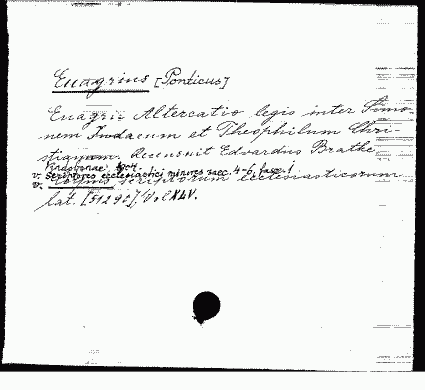 Euagrius [Ponticus]
Euagrii Altercatio legis inter Simo-
nem Judaeum et Theophilum Chri-
stianum. Recensuit Edvardus Bratke
Vindobonae 1904.
v. Scriptores ecclesiastici minores saec. 4-6, fasc. 1
v. Corpus scriptorum ecclesiasticorum
lat. [51292] Vol XLV.